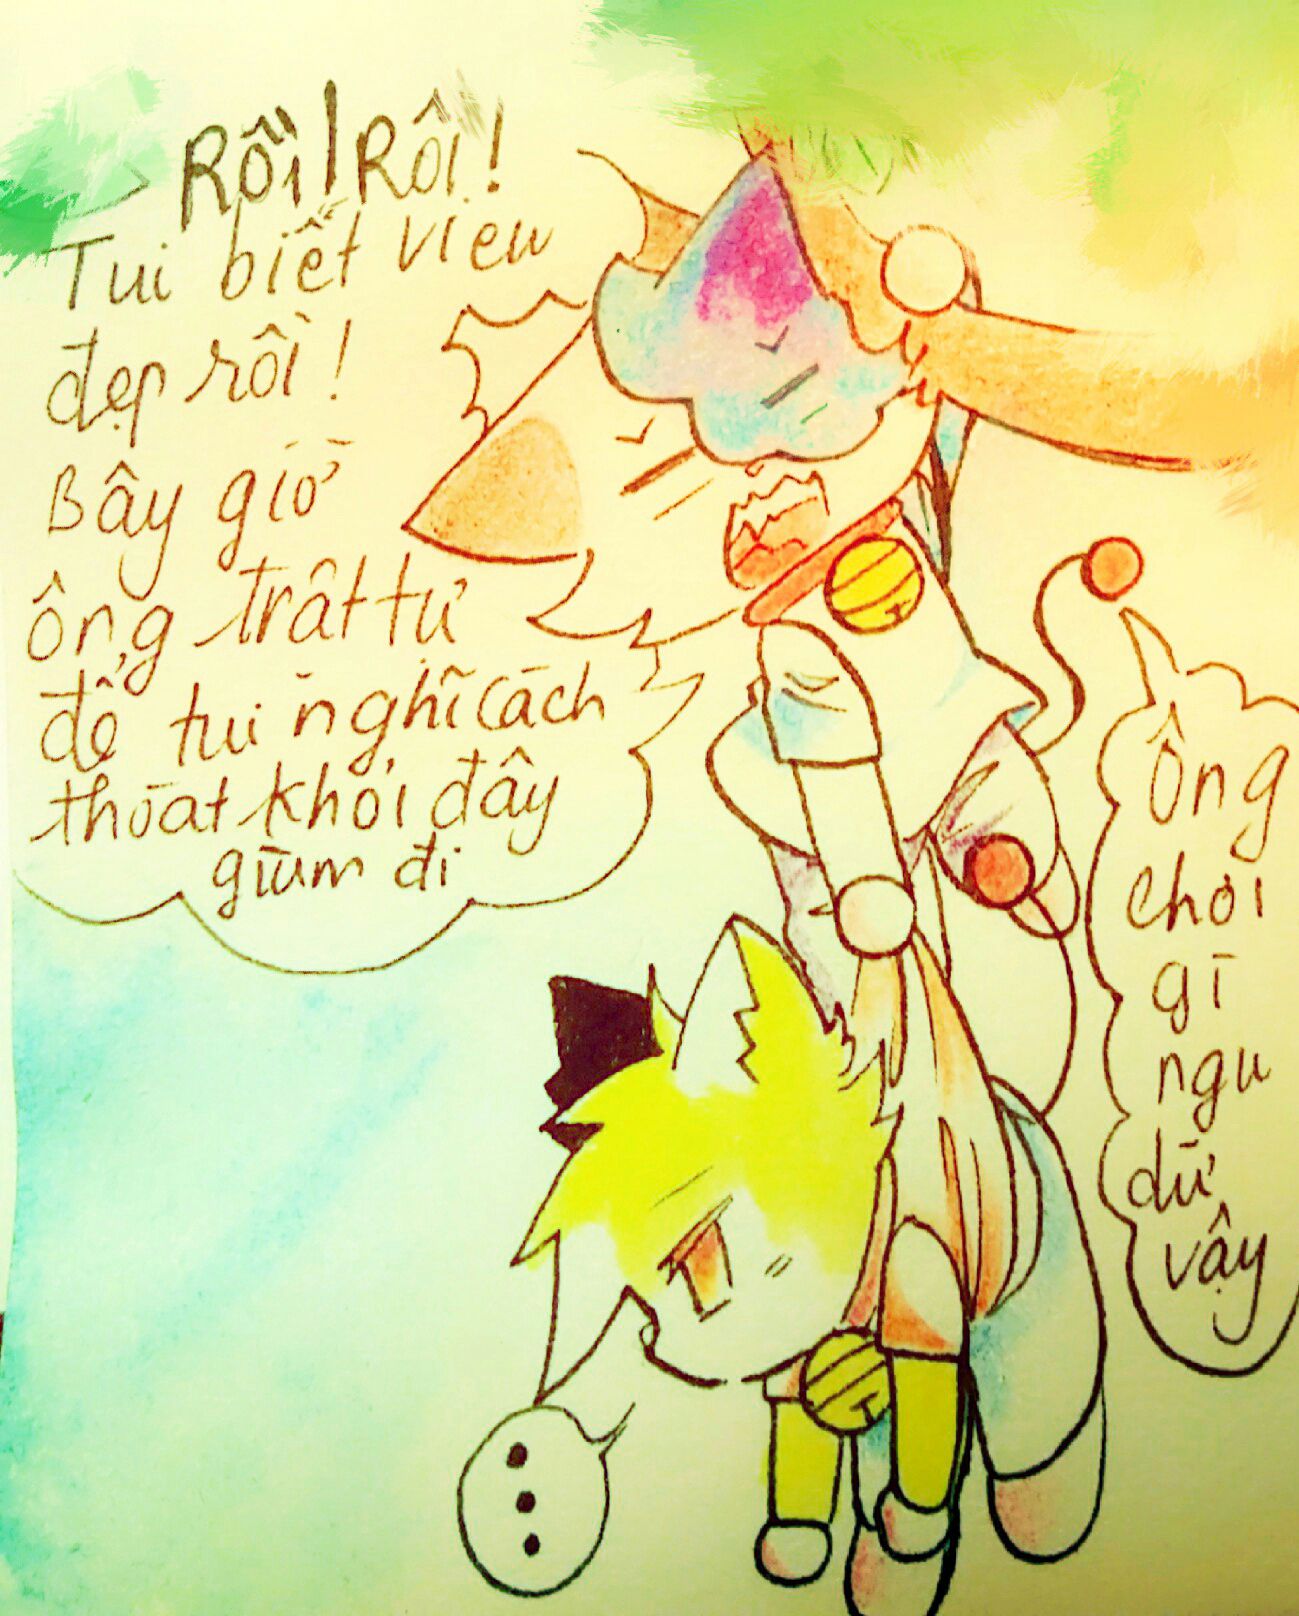 Rồi! Rồi!
Tui biết view
đẹp rồi!
Bây giờ
ông trật tự
để tui nghĩ cách
thoát khỏi đây
giùm đi
...
Ông
chơi
gì
ngu
dữ
vậy